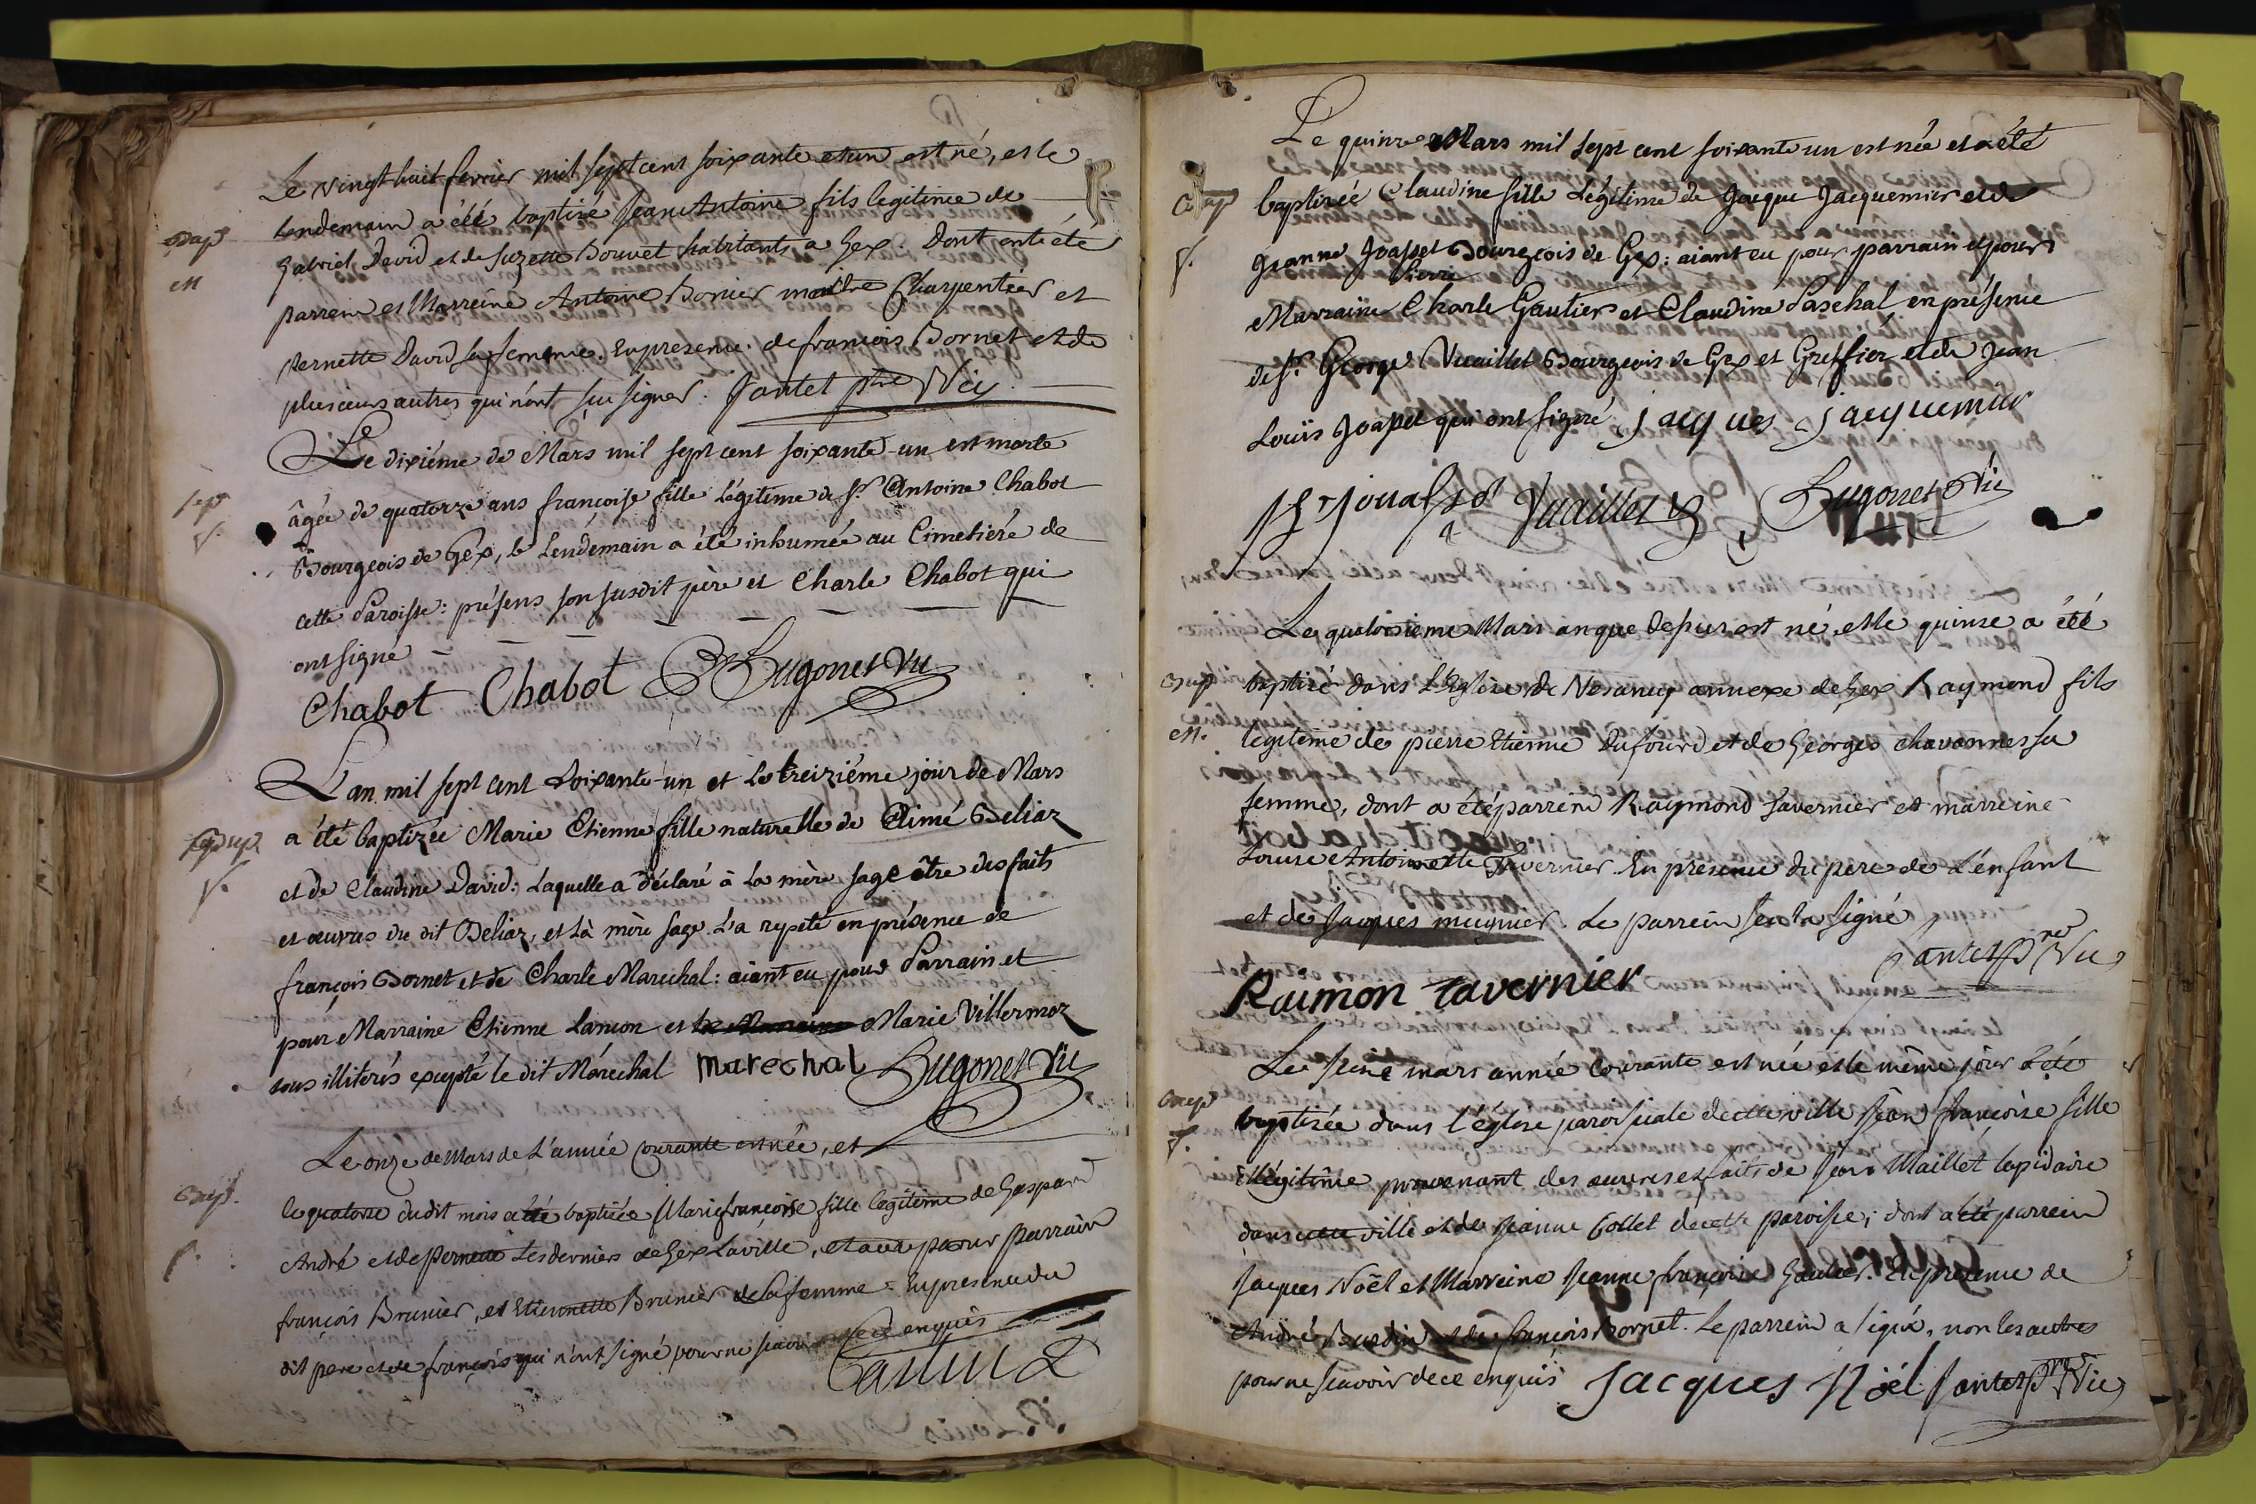 Le vingt huit fevrier mil sept cent soixante et un est né, et le
Bap lendemain a été baptisé Jean Antoine fils legitime de
M Gabriel David et de Suzette Bouvet habitants a Gex. Dont ont été
parrein et Marreine Antoine Bonier maitre Charpentier et
Pernette David sa femme. En presence de francois Bornet et de
plusieurs autres qui n'ont sçu signer. Pantet ptre Vic
Le dixiéme de Mars mil sept cent soixante-un est morte
sep âgée de quatorze ans françoise fille Légitime de Sr. Antoine Chabot
f. Bourgeois de Gex, le Lendemain a été inhumée au Cimetiére de
cette Paroisse: présens son susdit père et Charle Chabot qui
ont signé
Chabot Chabot Hugonet Vic
L'an mil sept cent Soixante-un et Le treiziéme jour de Mars
Bap a été baptizée Marie Etienne fille naturelle de Aimé Beliaz
f. et de Claudine David: Laquelle a déclaré à la mère sage être des faits
et œuvres du dit Beliaz, et la mère sage l'a repeté en présence de
françois Bornet et de Charle Marechal: aiant eu pour Parrain et
pour Marraine Etienne Lanion et Marie Villermoz
tous illiterés exepté le dit Maréchal marechal Hugonet Vic
Le onze de Mars de L'année Courante est née, et
Bap. le quatorze du dit mois a été baptisée Marie françoise fille legitime de Gaspard
f. André et de Pernette Lesderniers de Gex La ville, et a eu pour parrain
françois Brunier, et Etiennette Brunier sa femme. En presence du
dit pere et de françois qui n'ont signé pour ne scavoir de ce enquis
Le quinze Mars mil sept cent soixante un est née et a été
Bap baptizée Claudine fille Légitime de Jacque Jacquemier et de
f. Jeanne Joasset Bourgeois de Gex: aiant eu pour parrain et pour
Pierre
Marraine Charle Gautier et Claudine Paschal en présence
de Sr. George Vuaillet Bourgeois de Gex et Greffier et de Jean
Louïs Joaset qui ont signé jacques jacquemier
Vuaillet Hugonet Vic
Le quatorsieme Mars an que depuis est né et le quinse a été
Bap baptisé dans L'Eglise de Vesancy annexe de Gex Raymond fils
M. legitime de pierre Etienne Dufourd et de Georges Chavannes sa
femme, dont a été parrein Raymond Tavernier et marreine
Louise Antoinette Tavernier. En presence du pere de L'enfant
et de Jacques meunier. Le parrein seul a signé
Pantet Ptre Vic
Raimon tavernier
Le seize mars année courante est née et le même jour a été
Bap baptisée dans l'église paroissiale de cette ville Jean françoise fille
f. illégitime provenant des œuvres et faits de Jean Maillet lapidaire
dans cette ville et de Jeanne Collet de cette paroisse; dont a été parrein
Jacques Noël et Marreine Jeanne françoise Gautier. En presence de
André Burdin et de françois Bornet. Le parrein a signé, non les autres
pour ne scavoir de ce enquis Jacques Noël Pantet Ptre Vic